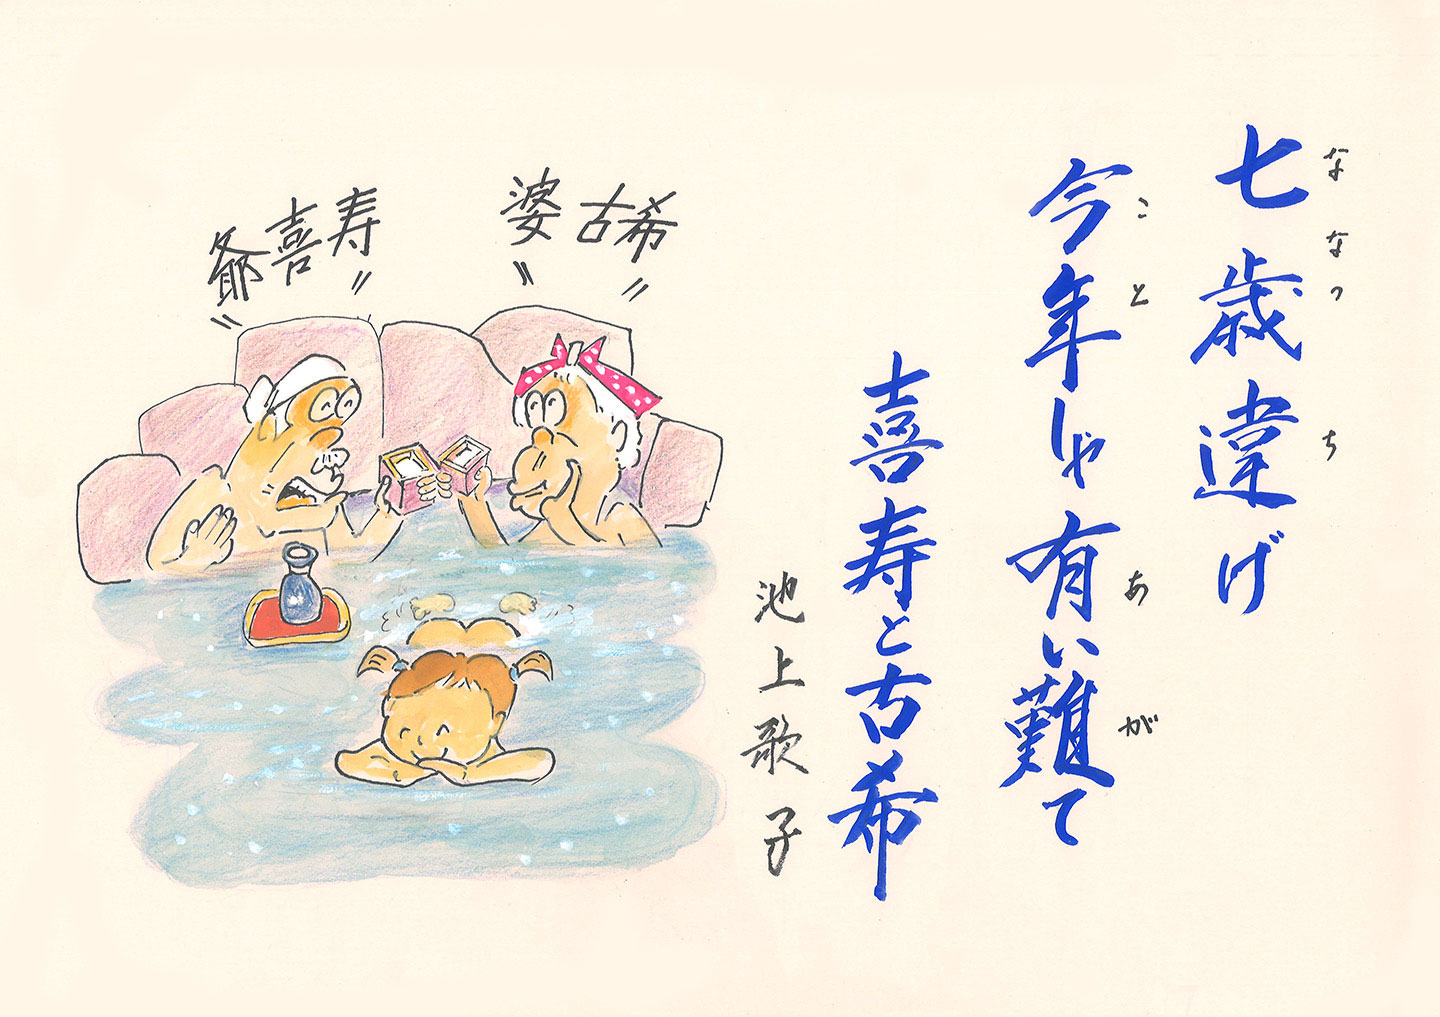 七歳違げ
ななつち
今年しゃ有い難て
ことあが
喜寿と古希
池上歌子
婆古希〃
爺喜寿〃